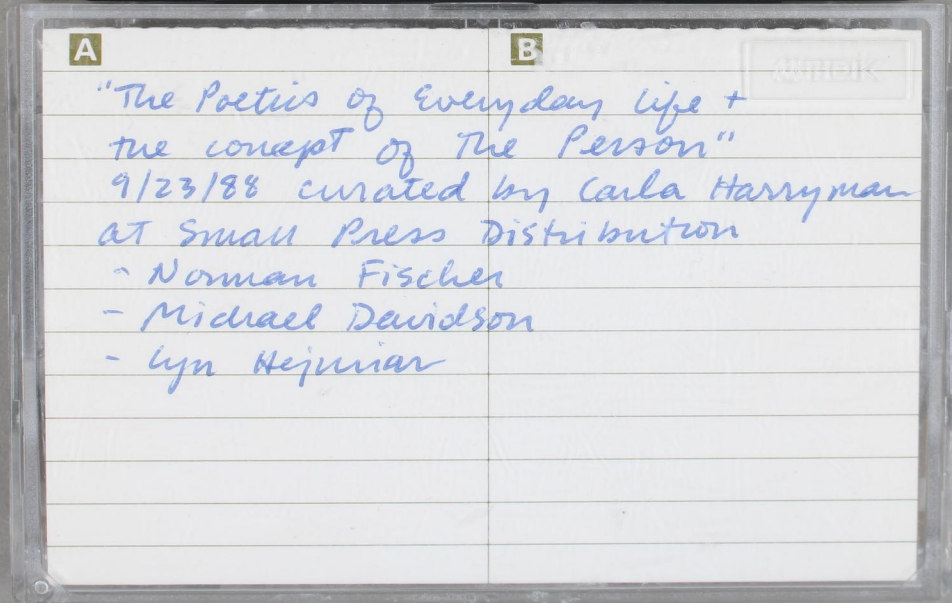 A B
"The Poetics of Everyday Life +
the concept of The Person"
9/23/88 curated by Carla Harryman
at Small Press Distribution
- Norman Fischer
- Michael Davidson
- Lyn Hejinian